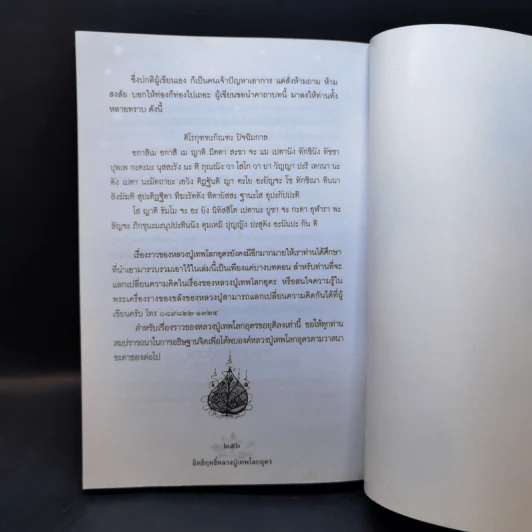 ซึ่งปกติผู้เขียนเอง ก็เป็นคนเจ้าปัญหาเอาการ แต่สั่งห้ามถาม ห้าม
สงสัย บอกให้ท่องก็ท่องไปเถอะ ผู้เขียนขอนำคาถาบทนี้ มาลงให้ท่านทั้ง
หลายทราบ ดังนี้
ติโรกุฑฑะกัณฑะ ปัจฉิมภาค
อทาสิเม อกาสิ เม ญาติ มิตตา สะขา จะ เม เปตานัง ทักขิณัง ทัชชา
ปุพเพ กะตะมะ นุสสะรัง นะ หิ รุณณัง วา โสโก วา ยา วัญญา ปะริ เทวนา นะ
ตัง เปตา นะมัตถายะ เอวัง ติฏฐันติ ญา ตะโย อะยัญจะ โข ทักขิณา ทินนา
สังฆัมหิ สุปะติฏฐิตา ทีฆะรัตตัง หิตายัสสะ ฐานะโส อุปะกัปปะติ
โส ญาติ ธัมโม จะ อะ ยัง นิทัสสิโต เปตานะ บูชา จะ กะตา อุฬารา พะ
ลัญจะ ภิกขูนะมะนุปปะทินนัง ตุมเหหิ ปุญญัง ปะสุตัง อะนัปปะ กัน ติ
เรื่องราวของหลวงปู่เทพโลกอุดรยังคงมีอีกมากมายให้เราท่านได้ศึกษา
ที่นำเอามารวบรวมเอาไว้ในเล่มนี้เป็นเพียงแค่บางบทตอน สำหรับท่านที่จะ
แลกเปลี่ยนความคิดในเรื่องของหลวงปู่เทพโลกอุดร หรือสนใจความรู้ใน
พระเครื่องรางของขลังของหลวงปู่สามารถแลกเปลี่ยนความคิดกันได้ที่ผู้
เขียนครับ โทร
สำหรับเรื่องราวของหลวงปู่เทพโลกอุดรขอยุติลงเท่านี้ ขอให้ทุกท่าน
สมปรารถนาในการอธิษฐานจิตเพื่อได้พบองค์หลวงปู่เทพโลกอุดรตามวาสนา
ชะตาของต่อไป
๒๕๖
อิทธิฤทธิ์หลวงปู่เทพโลกอุดร